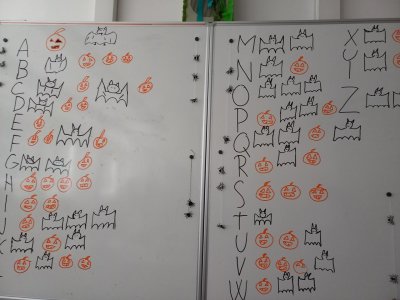 A
B
C
D
E
F
G
H
I
J
K
M
N
O
P
Q
R
S
T
U
V
W
X
Y
Z